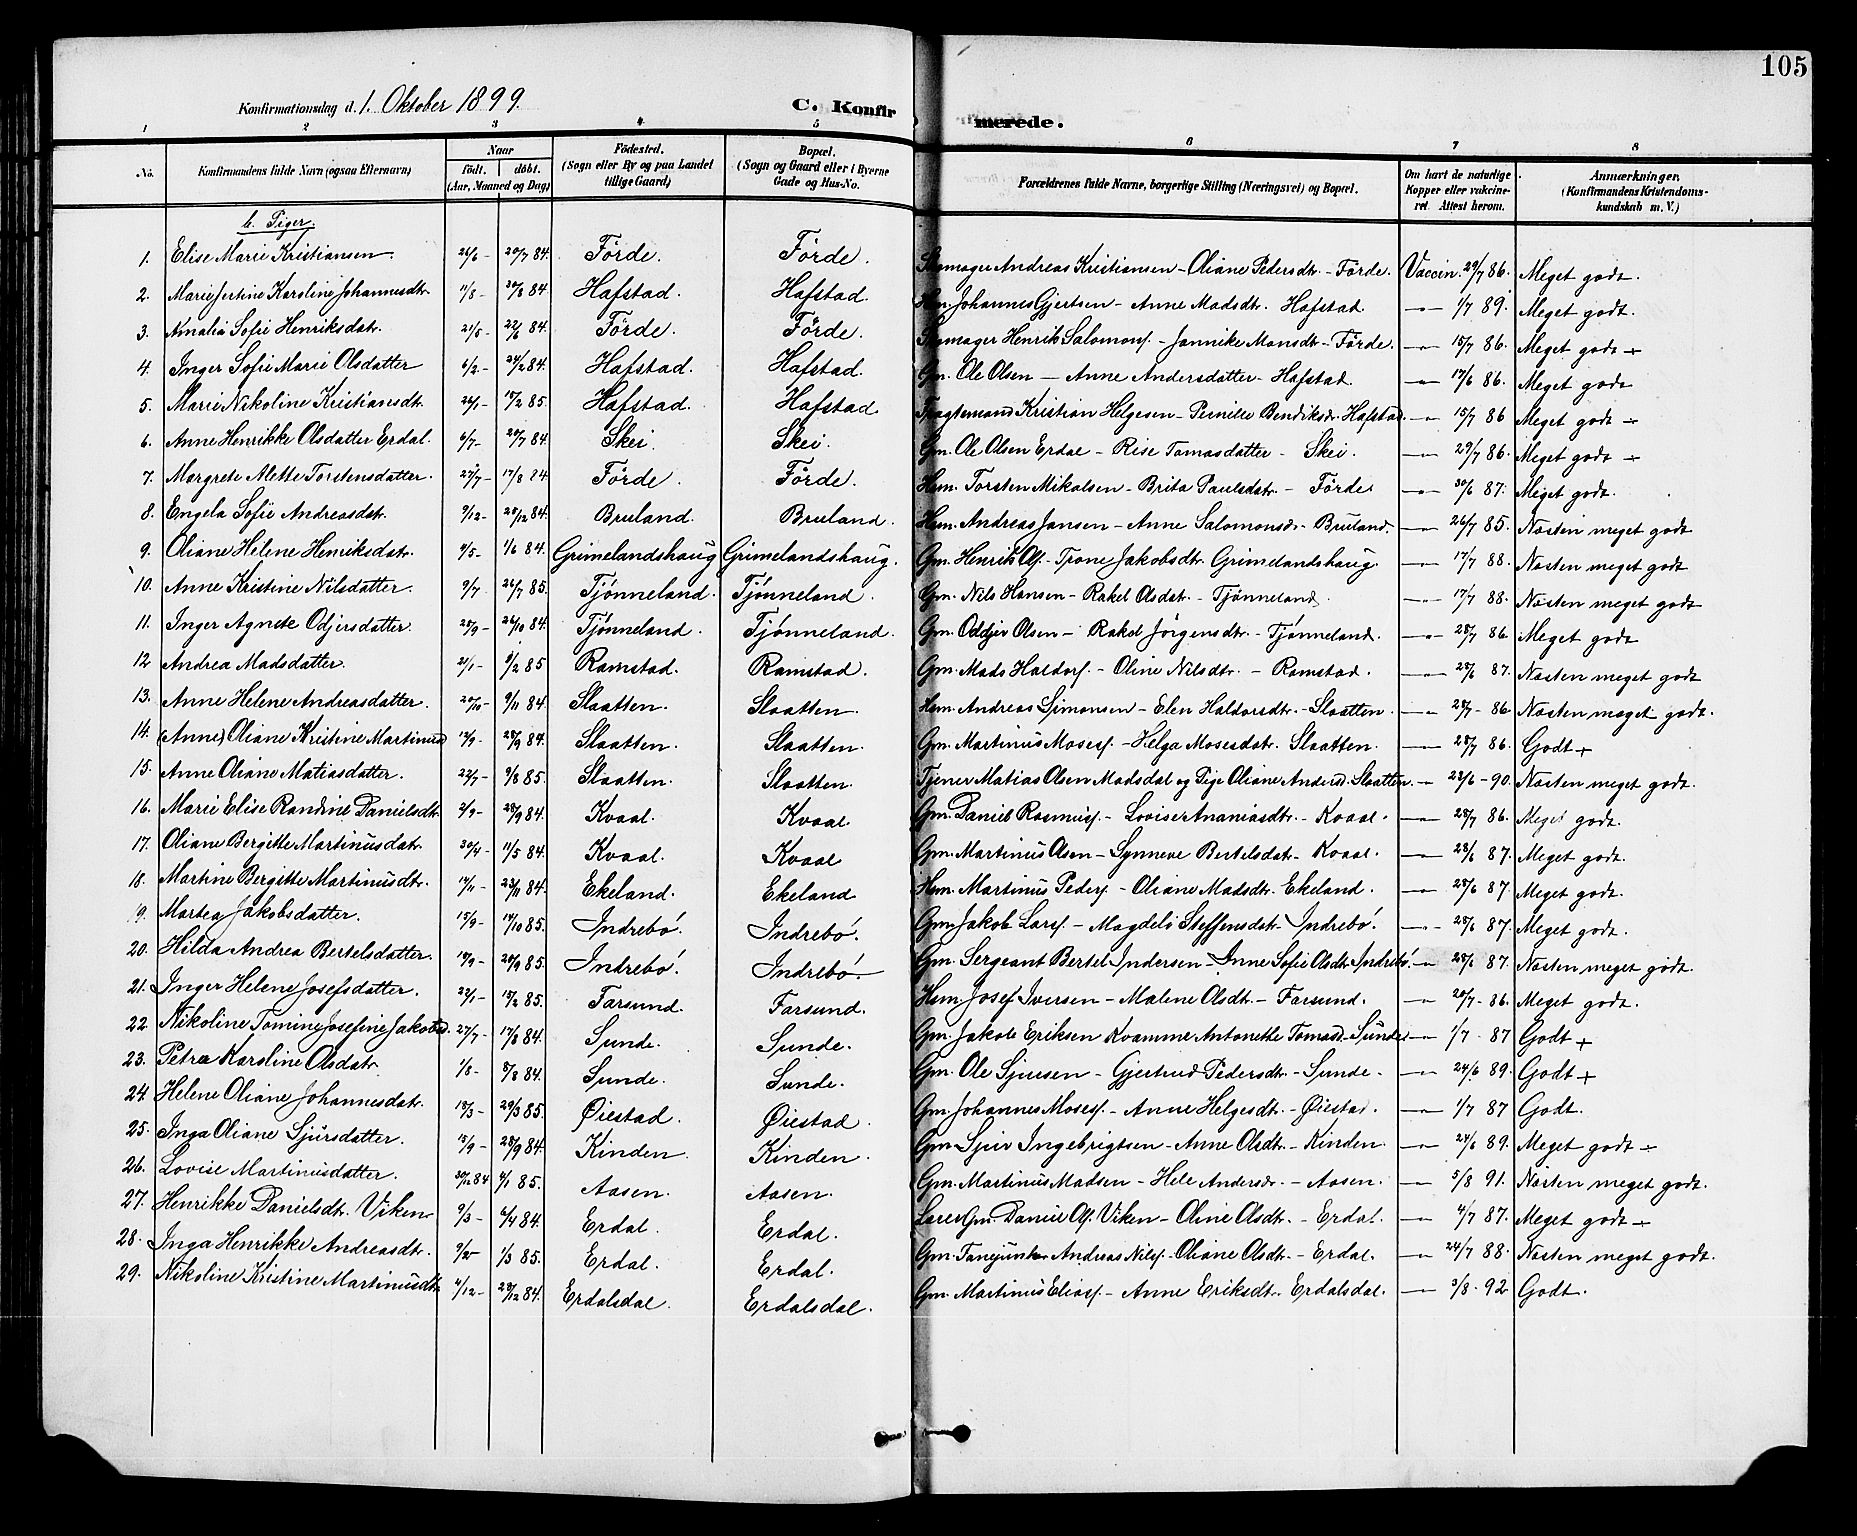 105
Konfirmationsdag d. 1. Oktober 1899. C. Konfirmerede.
1 2 3 4 5 6 7 8
No. Konfirmandens fulde Navn (ogsaa Efternavn) Naar født. døbt. (Aar, Maaned og Dag) Födested. (Sogn eller By og paa Landet tillige Gaard) Bopæl. (Sogn og Gaard eller i Byerne Gade og Hus-No. Forældrenes fulde Navne, borgerlige Stilling (Næringsvei) og Bopæl. Om havt de naturlige Kopper eller vakcineret. Attest herom. Anmærkninger. (Konfirmandens Kristendomskundskab m. V.)
b. Piger.
1. Elise Marie Kristiansen. 26/6 - 20/7 84. Förde. Förde. Skomager Andreas Kristiansen - Oliane Pedersdt. - Förde. Vaccin. 29/7 86. Meget godt.
2. Marie Jertine Karoline Johannesdt. 11/8 - 30/8 84. Hafstad. Hafstad. Hsm. Johannes Gjertsen - Anne Madsdt. Hafstad. -"- 1/7 89. Meget godt.
3. Amalia Sofie Henriksdatr. 21/5 - 22/6 84. Förde. Förde. Skomager Henrik Salomons. - Jannike Monsdt. - Förde. -"- 15/7 86. Meget godt +
4. Inger Sofie Marie Olsdatter 6/2 - 24/2 84. Hafstad. Hafstad. Gm. Ole Olsen - Anne Andersdatter - Hafstad. -"- 17/6 86. Meget godt
5. Marie Nikoline Kristiansdt. 26/1 - 15/2 85. Hafstad. Hafstad. Fragtemand Kristian Helgesen - Pernille Bendiksdr. Hafstad. -"- 15/7 86 Meget godt ÷
6. Anne Henrikke Olsdatter Erdal. 6/7 - 20/7 84. Skei. Skei. Gm. Ole Olsen Erdal - Rise Tomasdatter - Skei. -"- 29/7 86. Meget godt ÷
7. Margrete Alette Torstensdatter. 27/7 - 17/8 84. Förde. Förde. Hsm. Torsten Mikalsen - Brita Paulsdatr. - Förde -"- 30/6 87. Meget godt.
8. Engela Sofie Andreasdatr. 9/12 - 28/12 84. Bruland. Bruland. Hsm. Andreas Jansen - Anne Salomonsdr. - Bruland. -"- 26/7 85. Næsten meget godt
9. Oliane Helene Henriksdatr. 4/5 - 1/6 84. Grimelandshaug Grimelandshaug. Gm. Henrik Ols. - Trone Jakobsdt. Grimelandshaug. -"- 17/7 88. Næsten meget godt
10. Anne Kristine Nilsdatter. 9/7 - 26/7 85. Tjønneland. Tjønneland. Gm. Nils Hansen - Rakel Olsdat. - Tjønneland. -"- 17/7 88. Næsten meget godt
11. Inger Agnete Odjersdatter. 28/9 - 26/10 84. Tjønneland. Tjønneland. Gm. Oddjer Olsen - Rakel Jörgensdt. - Tjønneland. -"- 28/7 86 Meget godt
12 Andrea Madsdatter. 2/1 - 9/2 85 Ramstad. Ramstad. Gm. Mads Haldors. - Oline Nilsdt. - Ramstad. -"- 28/6 87. Næsten meget godt
13. Anne Helene Andreasdatter. 20/10 - 9/11 84. Slaatten. Slaatten. Hsm. Andreas Simonsen - Elen Haldorsdt. - Slaatten. -"- 28/7 - 86 Næsten meget godt.
14. (Anne) Oliane Kristine Martinusd 13/9 - 28/9 84. Slaatten. Slaatten. Gm. Martinus Moses. - Helga Mosesdatr. Slaatten. -"- 28/7 86. Godt +
15. Anne Oliane Matiasdatter. 22/7 - 9/8 85. Slaatten. Slaatten. Tjener Matias Olsen Madsdal og Pige Oliane Andersd. Slaatten. -"- 23/6 - 90. Næsten meget godt.
16. Marie Elise Randine Danielsdt. 2/9 - 28/9 84. Kvaal. Kvaal. Gm. Daniel Rasmuss. - Lovise Ananiasdt. - Kvaal. -"- 28/7 86. Meget godt.
17. Oliane Bergitte Martinusdatr. 30/4 - 11/5 84. Kvaal. Kvaal Gm. Martinus Olsen - Synneve Bertelsdat. - Kvaal. -"- 28/6 87. Meget godt.
18. Martine Bergitte Martinusdt. 14/11 - 23/11 84. Ekeland. Ekeland Hsm. Martinus Peders. - Oliane Madsdt. Ekeland. -"- 28/6 87. Meget godt.
19. Martea Jakobsdatter. 15/9 - 14/10 85. Indrebö. Indrebö. Gm. Jakob Lars. - Magdeli Steffensdatr. Indrebö. -"- 28/6 87. Meget godt.
20. Hilda Andrea Bertelsdatter. 10/9 - 20/9 85. Indrebö. Indrebö. Gm. Sergeant Bertel Andersen - Anne Sofie Olsdt. Indrebö. -"- 28/6 87. Næsten meget godt.
21. Inger Helene Josefsdatter. 22/1 - 15/2 85. Farsund. Farsund. Hsm. Josef Iversen - Malene Olsdt. - Farsund. -"- 20/7 - 86. Meget godt.
22 Nikoline Tomine Josefine Jakobsd. 27/7 - 17/8 84. Sunde. Sunde. Gm. Jakob Eriksen Kvamme Antonette Tomasd. - Sunde -"- 1/7 - 87 Godt +
23. Petra Karoline Olsdatr. 1/8 - 3/8 84. Sunde. Sunde. Gm. Ole Sjursen - Gjertrud Pedersdt. - Sunde. -"- 24/6 89. Godt +
24. Helene Oliane Johannesdatr. 13/3 - 29/3 85. Øiestad. Øiestad. Gm. Johannes Moses. - Anne Helgesdt. - Øiestad. -"- 1/7 87 Godt.
25. Inga Oliane Sjursdatter. 15/9 - 28/9 84. Kinden. Kinden. Gm. Sjur Ingebrigtsen - Anne Olsdt. - Kinden. -"- 24/6 89. Meget godt ÷
26. Lovise Martinusdatter. 30/12 84 4/1 85. Aasen. Aasen. Gm. Martinus Madsen - Hele Andersdr. - Aasen. -"- 5/8 91. Næsten meget godt.
27. Henrikke Danielsdt. Viken 9/3 - 6/4 84. Erdal. Erdal. Lærer Gm. Daniel Ols. Viken - Oline Olsdt. - Erdal. -"- 4/7 87. Meget godt ÷
28. Inga Henrikke Andreasdtr. 9/2 - 1/3 85. Erdal. Erdal. Gm. Fanejunker Andreas Nils. - Oliane Olsdt. - Erdal. -"- 24/7 88. Næsten meget godt.
29. Nikoline Kristine Martinusdt. 4/12 - 28/12 84. Erdalsdal. Erdalsdal. Gm. Martinus Elias. - Anne Eriksdt. Erdalsdal. -"- 3/8 - 92 Godt.